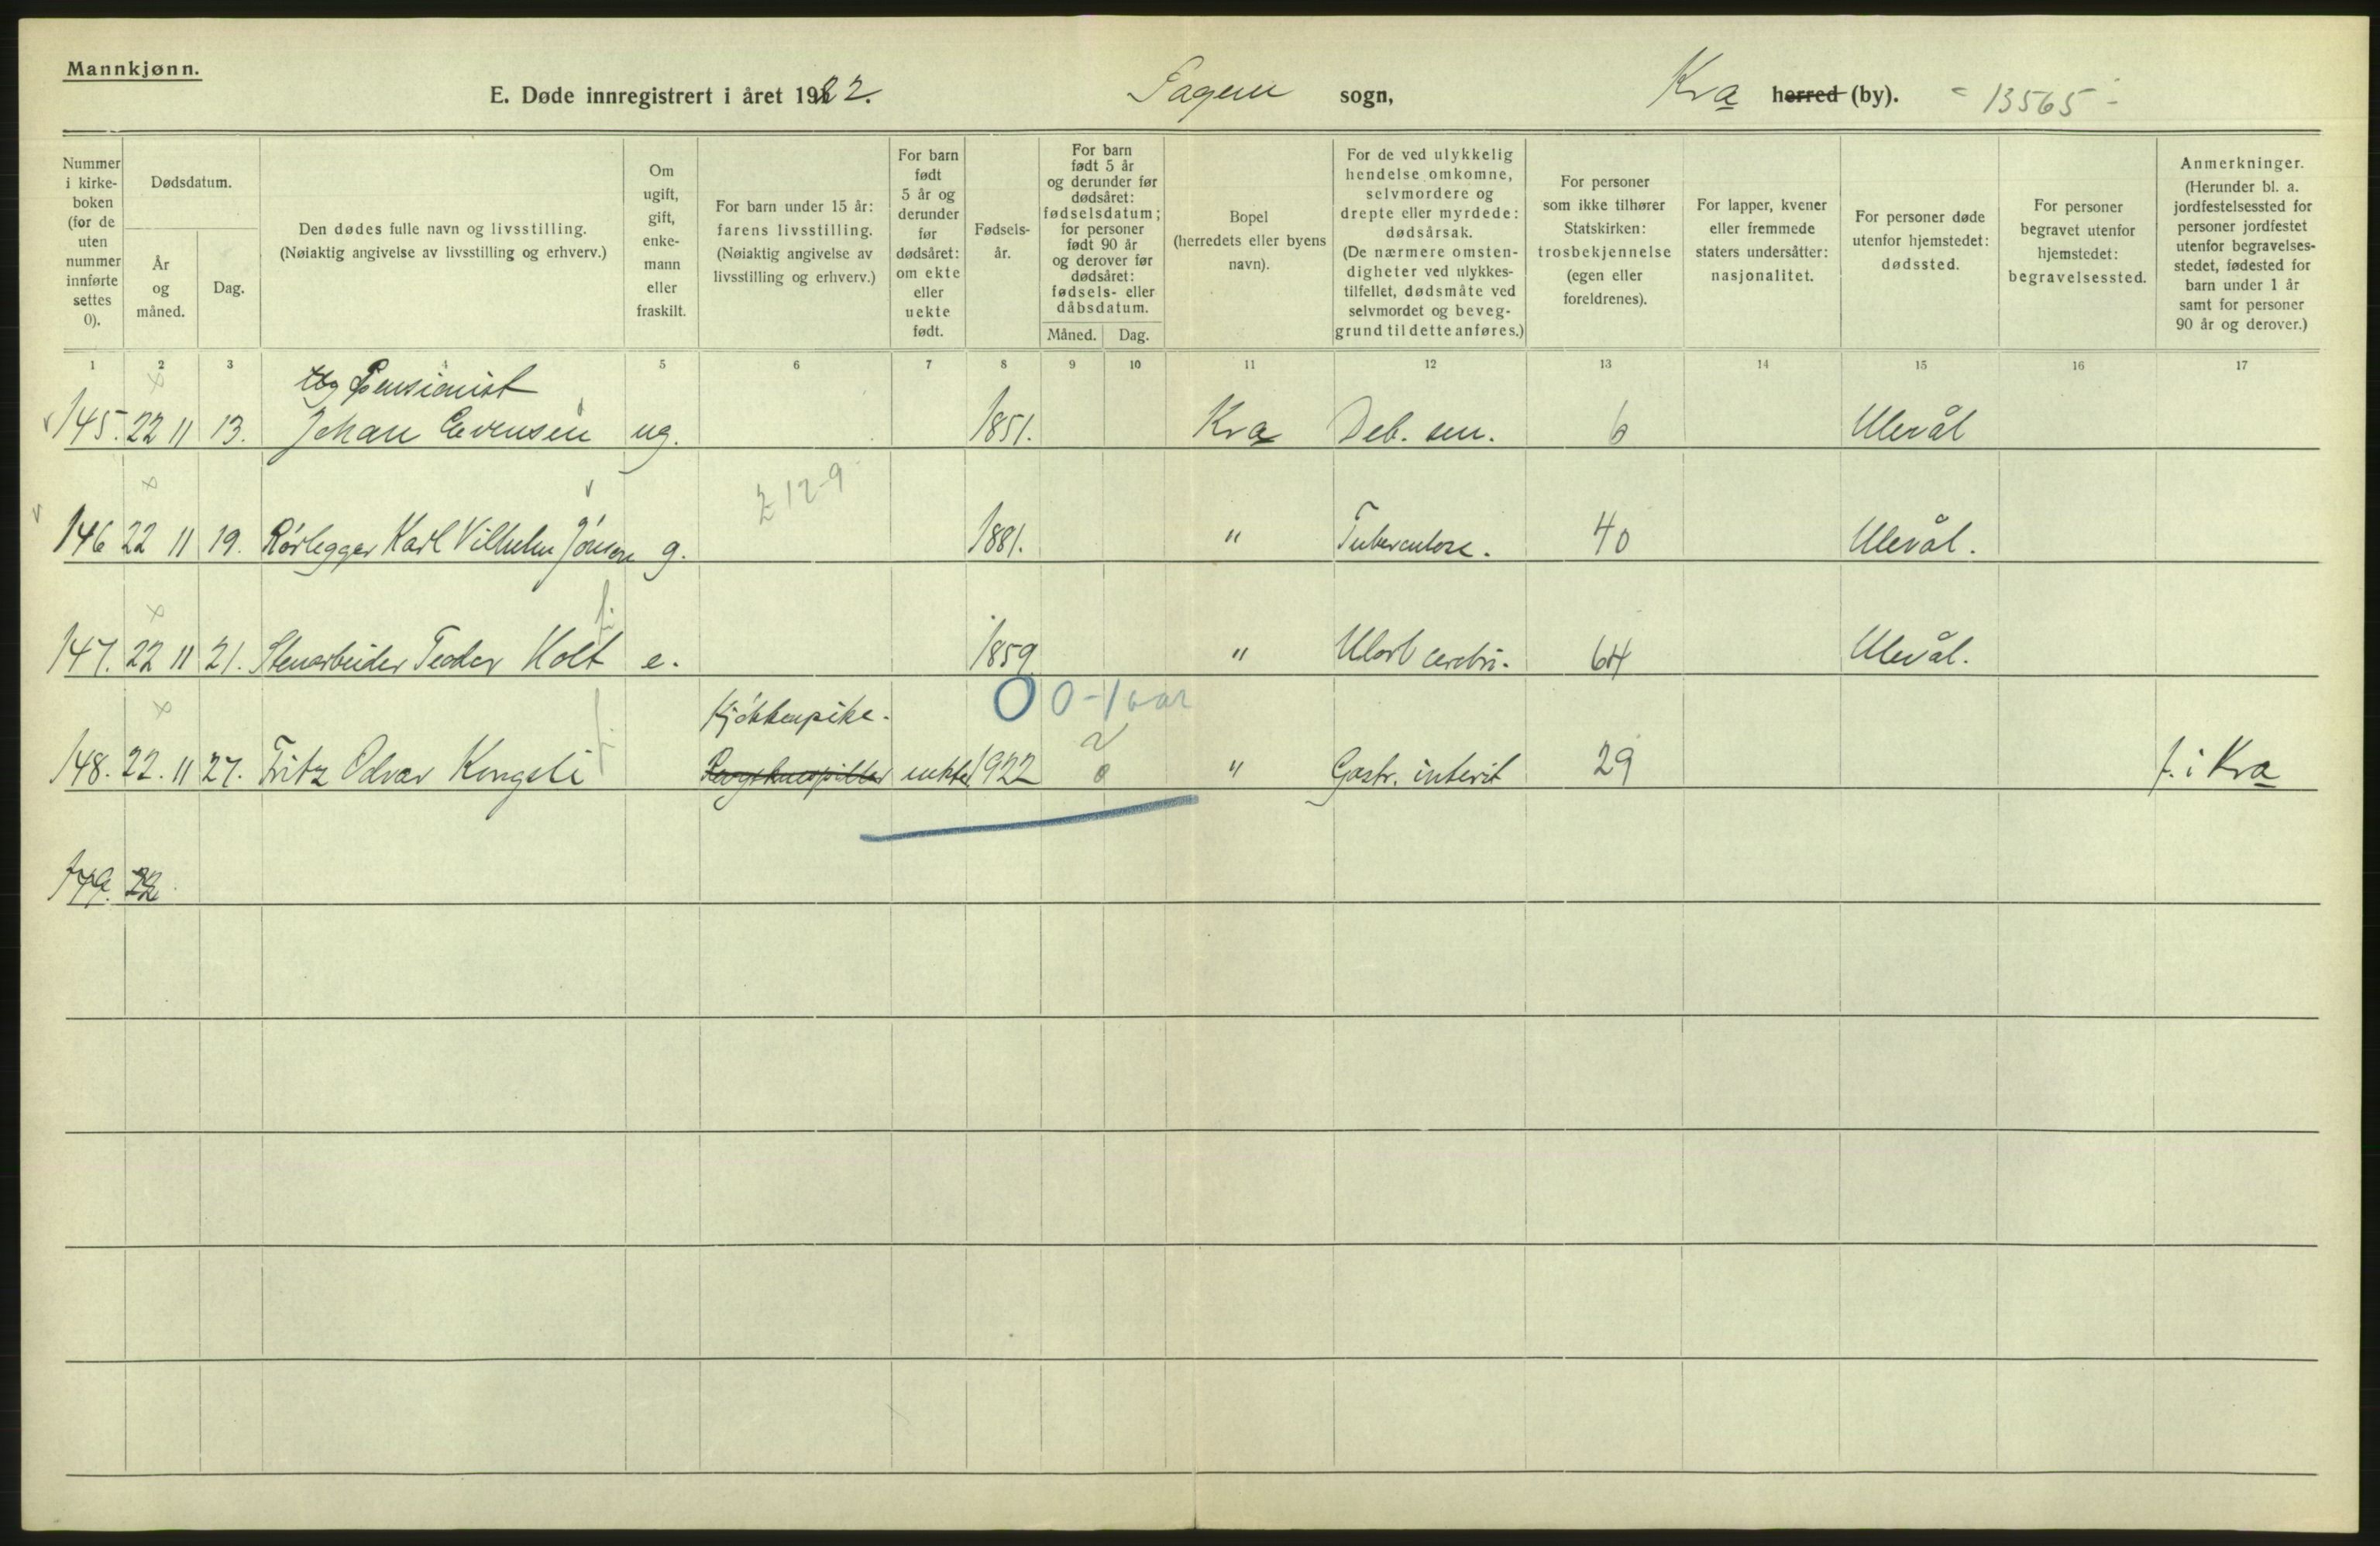 Mannkjønn.
E. Døde innregistrert i året 1922. Sagene sogn, Kra herred (by). - 13565 -
Nummer i kirke-boken (før de uten nummer innførte settes 0).
Dødsdatum.
År og måned.
Dag.
Den dødes fulle navn og livsstilling. (Nøiaktig angivelse av livsstilling og erhverv.)
Om ugift, gift, enke-mann eller fraskilt.
For barn under 15 år: farens livsstilling. (Nøiaktig angivelse av livsstilling og erhverv.)
For barn født 5 år og derunder før dødsåret: om ekte eller uekte født.
Fødsels-år.
For barn født 5 år og derunder før dødsåret: fødselsdatum; for personer født 90 år og derover før dødsåret: fødsels- eller dåbsdatum.
Måned. Dag.
Bopel (herredets eller byens navn).
For de ved ulykkelig hendelse omkomne, selvmordere og drepte eller myrdede: dødsårsak. (De nærmere omsten-digheter ved ulykkes-tilfellet, dødsmåte ved selvmordet og beveg-grund til dette anføres.)
For personer som ikke tilhører Statskirken: trosbekjennelse (egen eller foreldrenes).
For lapper, kvener eller fremmede staters undersåtter: nasjonalitet.
For personer døde utenfor hjemstedet: dødssted.
For personer begravet utenfor hjemstedet: begravelsessted.
Anmerkninger. (Herunder bl. a. jordfestelsessted for personer jordfestet utenfor begravelses-stedet, fødested for barn under 1 år samt for personer 90 år og derover.)
1 2 3 4 5 6 7 8 9 10 11 12 13 14 15 16 17
Pensionist
145. 22 11 13. Johan Evensen ug. 1851. Kra Deb. sen. 6 Ulevål
£ 12-9
146 22 11 19. Rørlegger Karl Vilhelm Jónson g. 1881. " Tuberculose. 40 Ulevål.
147. 22 11 21. Stenarbeider Teodor Holt e. 1859 " cerebri. 64 Ulevål.
Kjøkkenpike. 0 0-1 aar
148. 22. 11 27. Fritz Odvar Kongsli uekte 1922 0 " Gastr. interit 29 f. i Kra
149. 22.